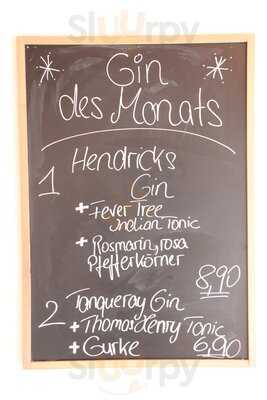 Sluurpy
Gin
des Monats
1 Hendricks
Gin
+ Fever Tree
Indian Tonic
+ Rosmarin, rosa
Pfefferkörner
8,90
2 Tanqueray Gin
+ Thomas Henry Tonic
+ Gurke 6,90
Sluurpy